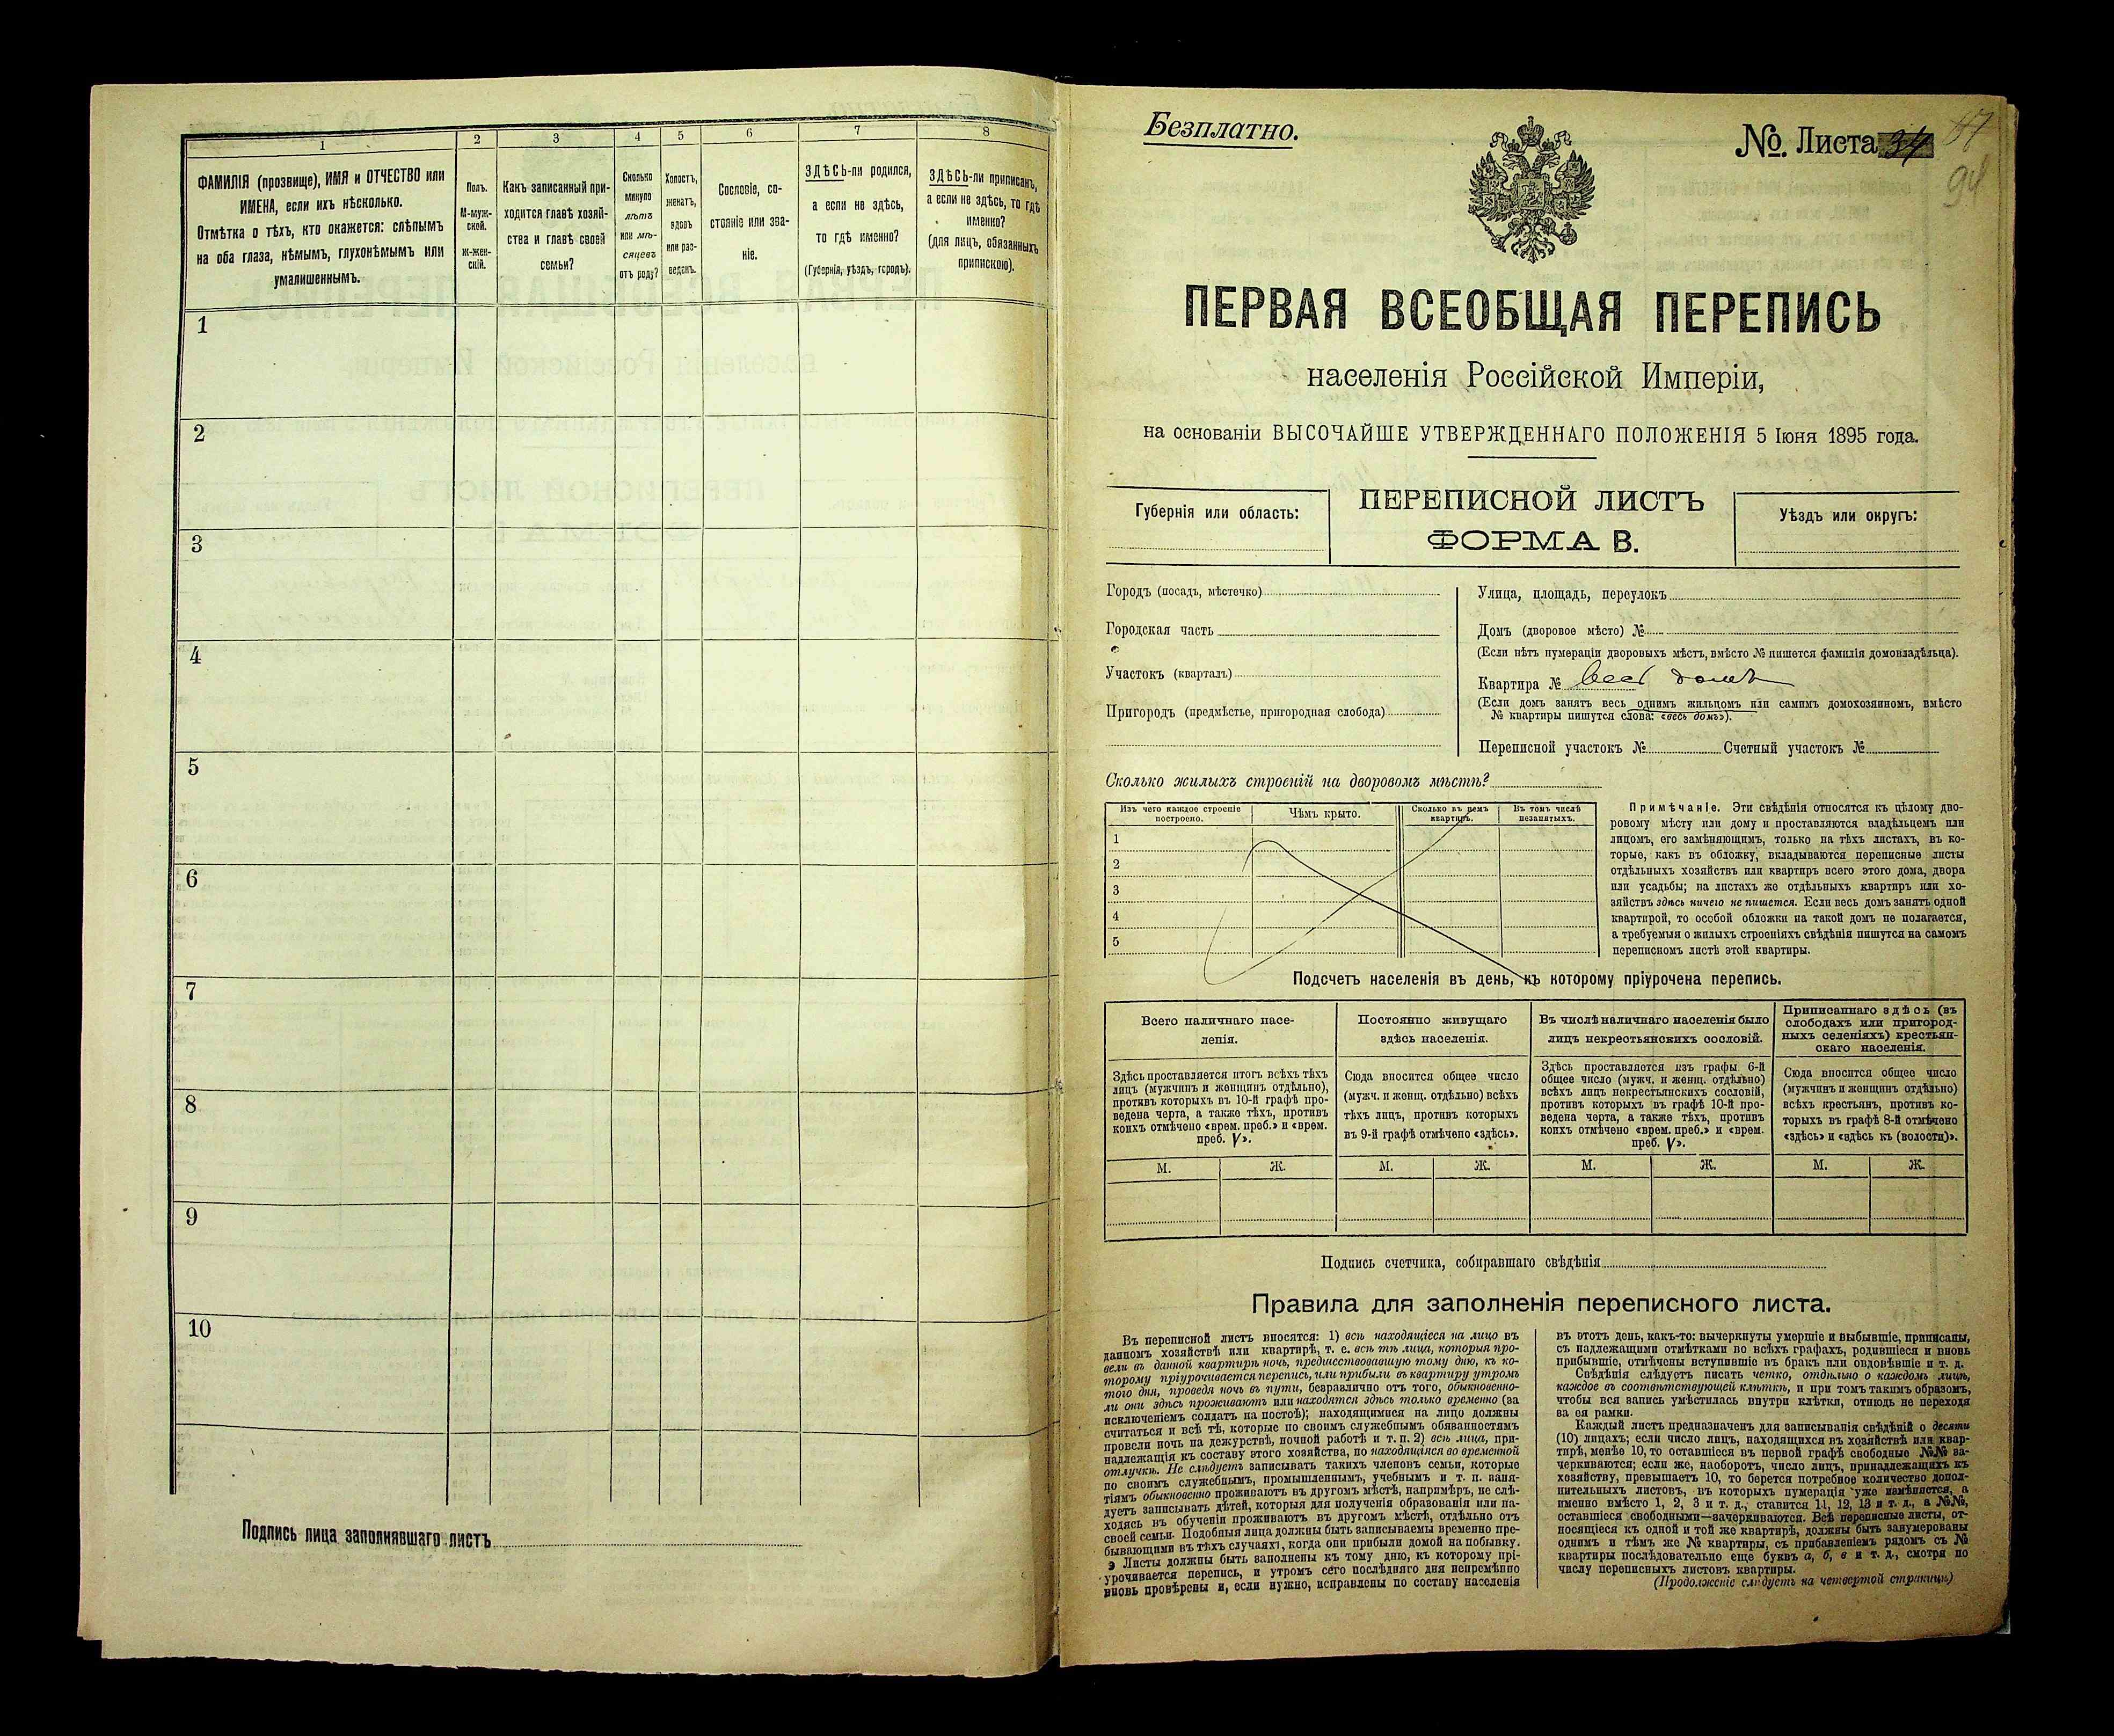 1
2
3
4
5
6
7
8
ФАМИЛІЯ (прозвище), ИМЯ и ОТЧЕСТВО или
ИМЕНА, если ихъ нѣсколько.
Отмѣтка о тѣхъ, кто окажется: слѣпымъ
на оба глаза, нѣмымъ, глухонѣмымъ или
умалишеннымъ.
Полъ.
М-муж-
ской.
Ж-жен-
скій.
Какъ записанный при-
ходится главѣ хозяй-
ства и главѣ своей
семьи?
Сколько
минуло
лѣтъ
или мѣ-
сяцевъ
отъ роду?
Холостъ,
женатъ,
вдовъ
или раз-
веденъ.
Сословіе, со-
стояніе или зва-
ніе.
ЗДѢСЬ-ли родился,
а если не здѣсь,
то гдѣ именно?
(Губернія, уѣздъ, городъ).
ЗДѢСЬ-ли приписанъ,
а если не здѣсь, то гдѣ
именно?
(для лицъ, обязанныхъ
припискою).
1
2
3
4
5
6
7
8
9
10
Подпись лица заполнявшаго листъ
Безплатно.
№ Листа 34
94
ПЕРВАЯ ВСЕОБЩАЯ ПЕРЕПИСЬ
населенія Россійской Имперіи,
на основаніи ВЫСОЧАЙШЕ УТВЕРЖДЕННАГО ПОЛОЖЕНІЯ 5 Іюня 1895 года.
Губернія или область:
ПЕРЕПИСНОЙ ЛИСТЪ
ФОРМА В.
Уѣздъ или округъ:
Городъ (посадъ, мѣстечко)
Городская часть
Участокъ (кварталъ)
Пригородъ (предмѣстье, пригородная слобода)
Улица, площадь, переулокъ
Домъ (дворовое мѣсто) №
(Если нѣтъ нумераціи дворовыхъ мѣстъ, вмѣсто № пишется фамилія домовладѣльца).
Квартира № весь домъ
(Если домъ занятъ весь однимъ жильцомъ или самимъ домохозяиномъ, вмѣсто
№ квартиры пишутся слова: «весь домъ»).
Переписной участокъ № Счетный участокъ №
Сколько жилыхъ строеній на дворовомъ мѣстѣ?
Изъ чего каждое строеніе
построено.
Чѣмъ крыто.
Сколько въ немъ
квартиръ.
Въ томъ числѣ
незанятыхъ.
1
2
3
4
5
Примѣчаніе. Эти свѣдѣнія относятся къ цѣлому дво-
ровому мѣсту или дому и проставляются владѣльцемъ или
лицомъ, его замѣняющимъ, только на тѣхъ листахъ, въ ко-
торые, какъ въ обложку, вкладываются переписные листы
отдѣльныхъ хозяйствъ или квартиръ всего этого дома, двора
или усадьбы; на листахъ же отдѣльныхъ квартиръ или хо-
зяйствъ здѣсь ничего не пишется. Если весь домъ занятъ одной
квартирой, то особой обложки на такой домъ не полагается,
а требуемыя о жилыхъ строеніяхъ свѣдѣнія пишутся на самомъ
переписномъ листѣ этой квартиры.
Подсчетъ населенія въ день, къ которому пріурочена перепись.
Всего наличнаго насе-
ленія.
Постоянно живущаго
здѣсь населенія.
Въ числѣ наличнаго населенія было
лицъ некрестьянскихъ сословій.
Приписаннаго здѣсь (въ
слободахъ или пригород-
ныхъ селеніяхъ) крестьян-
скаго населенія.
Здѣсь проставляется итогъ всѣхъ тѣхъ
лицъ (мужчинъ и женщинъ отдѣльно),
противъ которыхъ въ 10-й графѣ про-
ведена черта, а также тѣхъ, противъ
коихъ отмѣчено «врем. преб.» и «врем.
преб. V».
Сюда вносится общее число
(мужч. и женщ. отдѣльно) всѣхъ
тѣхъ лицъ, противъ которыхъ
въ 9-й графѣ отмѣчено «здѣсь».
Здѣсь проставляется изъ графы 6-й
общее число (мужч. и женщ. отдѣльно)
всѣхъ лицъ некрестьянскихъ сословій,
противъ которыхъ въ графѣ 10-й про-
ведена черта, а также тѣхъ, противъ
коихъ отмѣчено «врем. преб.» и «врем.
преб. V».
Сюда вносится общее число
(мужчинъ и женщинъ отдѣльно)
всѣхъ крестьянъ, противъ ко-
торыхъ въ графѣ 8-й отмѣчено
«здѣсь» и «здѣсь къ (волости)».
М. Ж. М. Ж. М. Ж. М. Ж.
Подпись счетчика, собиравшаго свѣдѣнія
Правила для заполненія переписного листа.
Въ переписной листъ вносятся: 1) всѣ находящіеся на лицо въ
данномъ хозяйствѣ или квартирѣ, т. е. всѣ тѣ лица, которыя про-
вели въ данной квартирѣ ночь, предшествовавшую тому дню, къ ко-
торому пріурочивается перепись, или прибыли въ квартиру утромъ
того дня, проведя ночь въ пути, безразлично отъ того, обыкновенно-
ли они здѣсь проживаютъ или находятся здѣсь только временно (за
исключеніемъ солдатъ на постоѣ); находящимися на лицо должны
считаться и всѣ тѣ, которые по своимъ служебнымъ обязанностямъ
провели ночь на дежурствѣ, ночной работѣ и т. п. 2) всѣ лица, при-
надлежащія къ составу этого хозяйства, но находящіяся во временной
отлучкѣ. Не слѣдуетъ записывать такихъ членовъ семьи, которые
по своимъ служебнымъ, промышленнымъ, учебнымъ и т. п. заня-
тіямъ обыкновенно проживаютъ въ другомъ мѣстѣ, напримѣръ, не слѣ-
дуетъ записывать дѣтей, которыя для полученія образованія или на-
ходясь въ обученіи проживаютъ въ другомъ мѣстѣ, отдѣльно отъ
своей семьи. Подобныя лица должны быть записываемы временно пре-
бывающими въ тѣхъ случаяхъ, когда они прибыли домой на побывку.
Листы должны быть заполнены къ тому дню, къ которому прі-
урочивается перепись, и утромъ сего послѣдняго дня непремѣнно
вновь провѣрены и, если нужно, исправлены по составу населенія
въ этотъ день, какъ-то: вычеркнуты умершіе и выбывшіе, приписаны,
съ надлежащими отмѣтками во всѣхъ графахъ, родившіеся и вновь
прибывшіе, отмѣчены вступившіе въ бракъ или овдовѣвшіе и т. д.
Свѣдѣнія слѣдуетъ писать четко, отдѣльно о каждомъ лицѣ,
каждое въ соотвѣтствующей клѣткѣ, и при томъ такимъ образомъ,
чтобы вся запись умѣстилась внутри клѣтки, отнюдь не переходя
за ея рамки.
Каждый листъ предназначенъ для записыванія свѣдѣній о десяти
(10) лицахъ; если число лицъ, находящихся въ хозяйствѣ или квар-
тирѣ, менѣе 10, то оставшіеся въ первой графѣ свободные №№ за-
черкиваются; если же, наоборотъ, число лицъ, принадлежащихъ къ
хозяйству, превышаетъ 10, то берется потребное количество допол-
нительныхъ листовъ, въ которыхъ нумерація уже измѣняется, а
именно вмѣсто 1, 2, 3 и т. д., ставится 11, 12, 13 и т. д., а №№,
оставшіеся свободными—зачеркиваются. Всѣ переписные листы, от-
носящіеся къ одной и той же квартирѣ, должны быть занумерованы
однимъ и тѣмъ же № квартиры, съ прибавленіемъ рядомъ съ №
квартиры послѣдовательно еще буквъ а, б, в и т. д., смотря по
числу переписныхъ листовъ квартиры.
(Продолженіе слѣдуетъ на четвертой страницѣ)